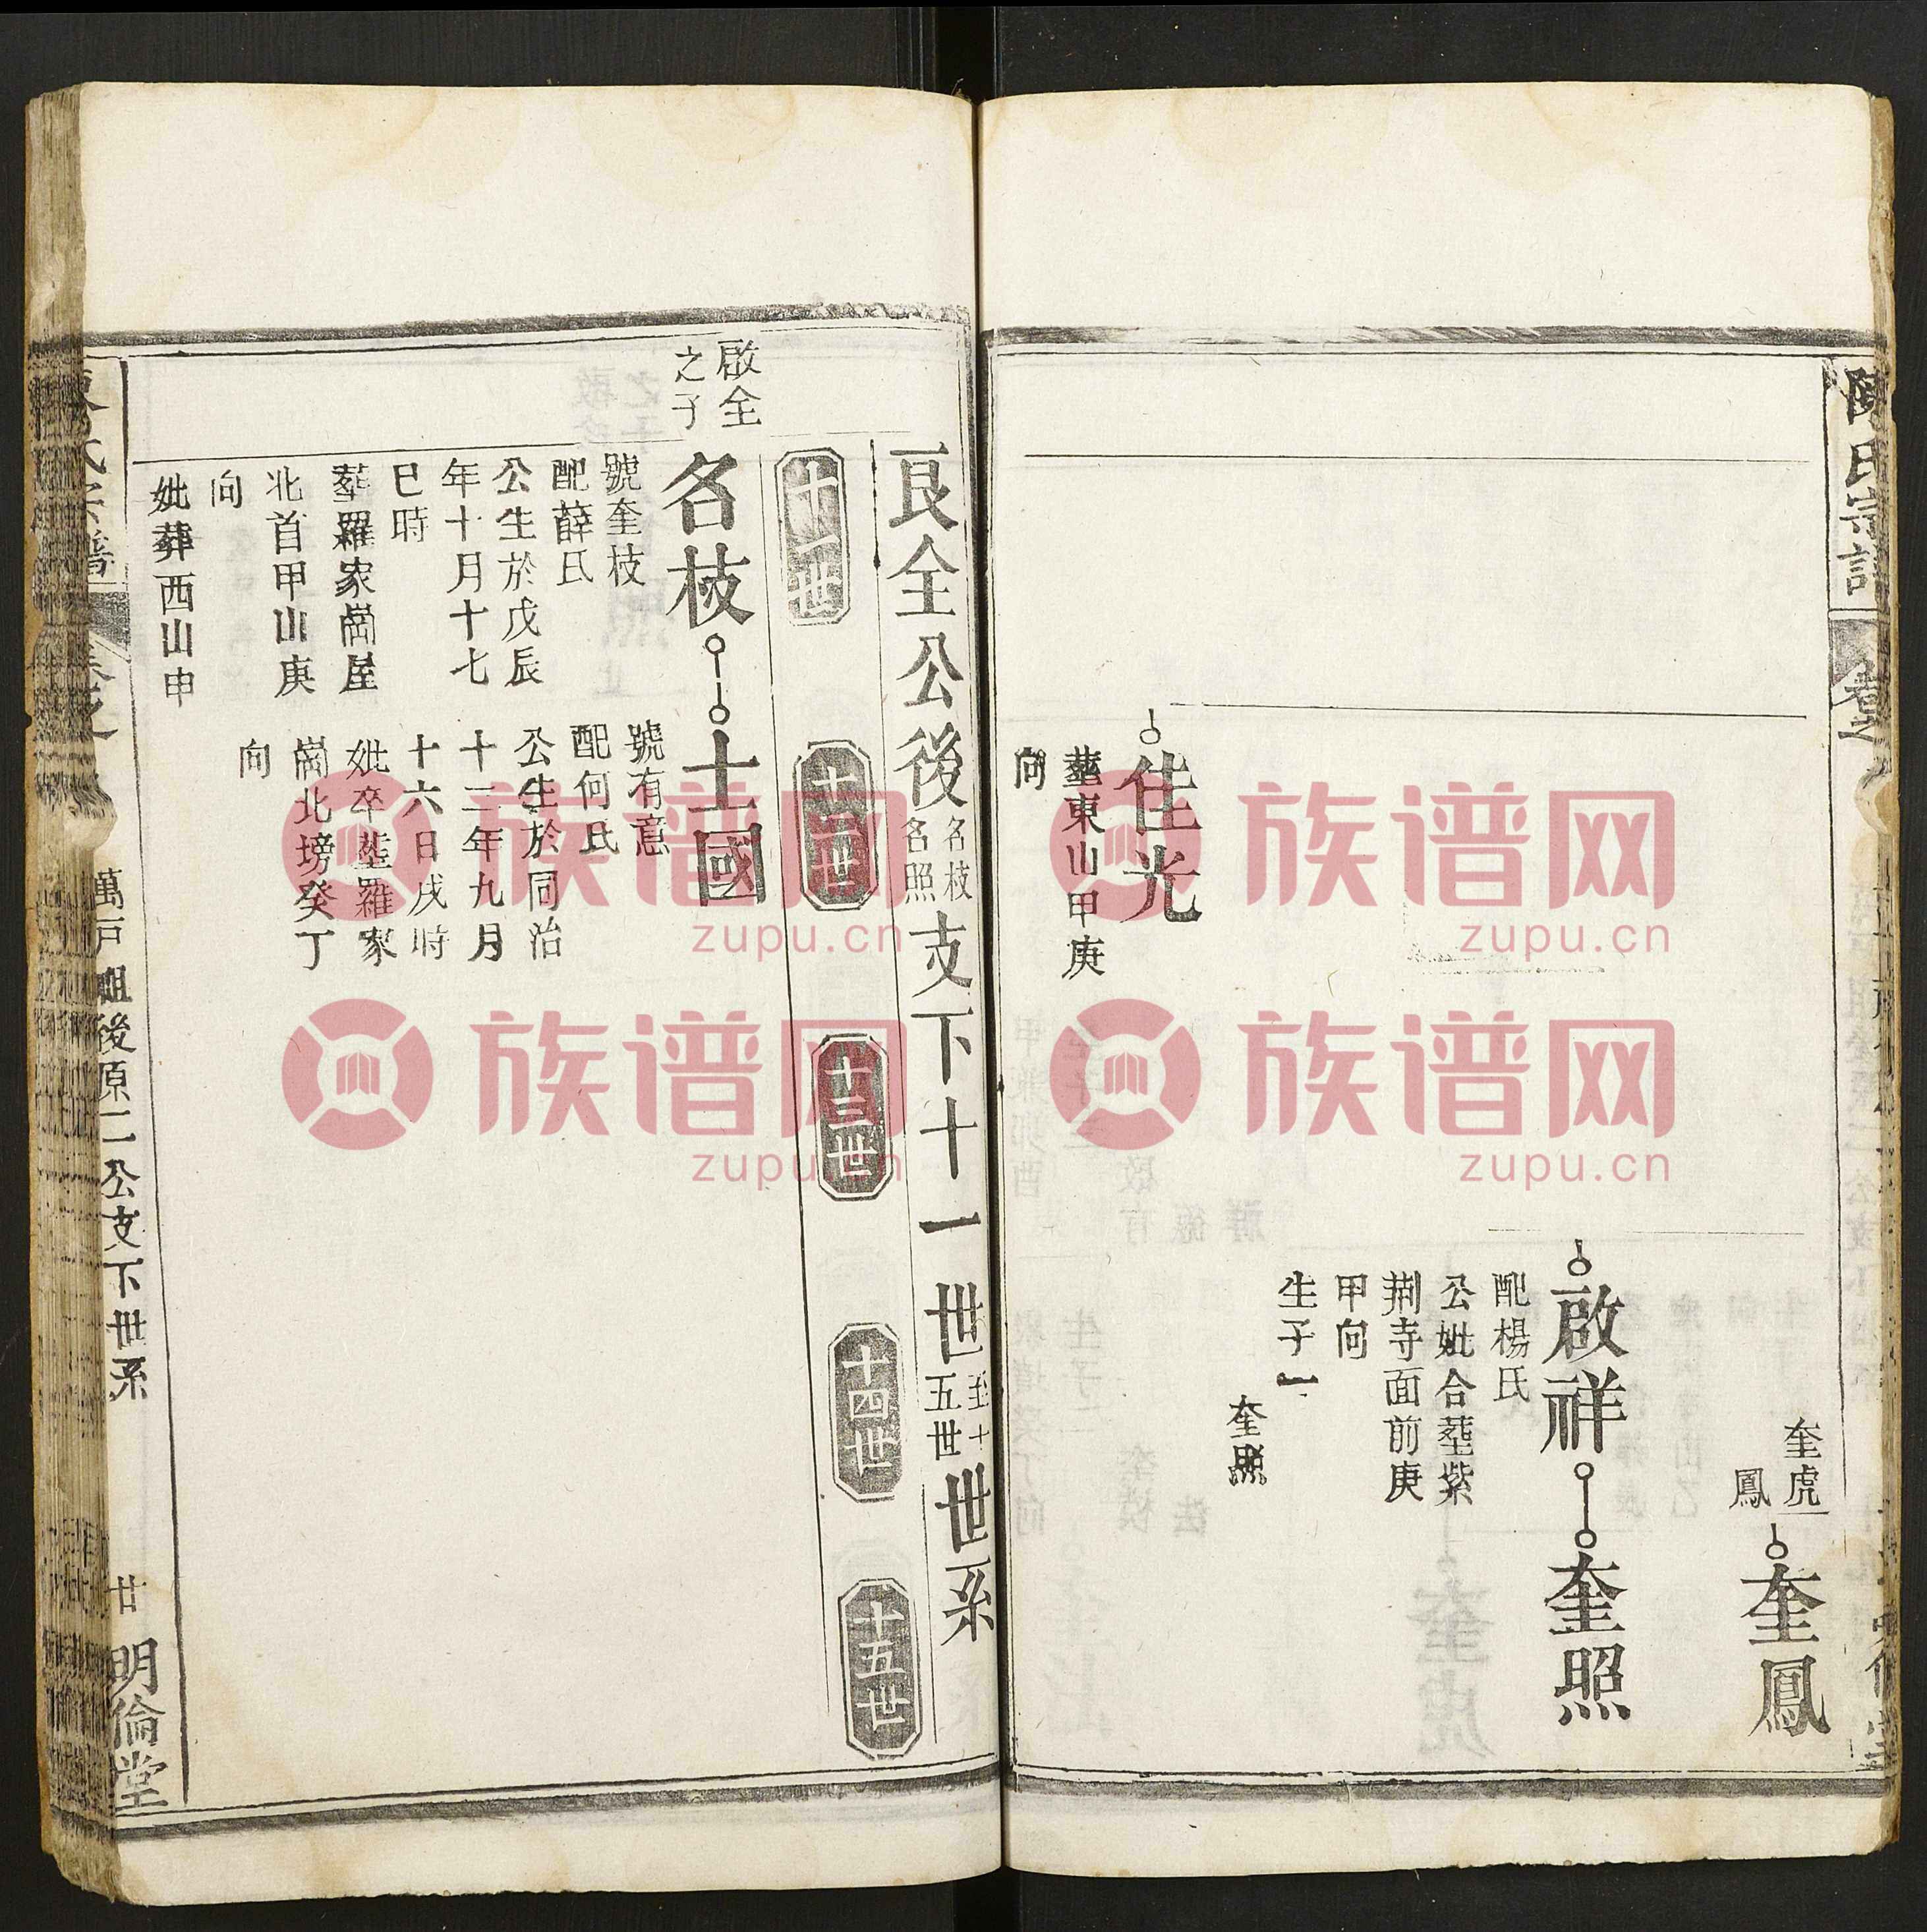 陳氏宗譜
奎虎
鳳
奎鳳
啟祥
奎照
配楊氏
公妣合塟紫
荆寺面前庚
甲向
生子一
奎照
佳光
塟東山甲庚
向
良全公後
名枝
名照
支下十一世
至十
五世
世系
十一世
十二世
十三世
十四世
十五世
啟全
之子
名枝
士國
號奎枝
配薛氏
公生於戊辰
年十月十七
巳時
塟羅家崗屋
北首甲山庚
向
妣葬西山申
號有意
配何氏
公生於同治
十二年九月
十六日戌時
妣卒塟羅家
崗北塝癸丁
向
萬戸祖後原二公支下世系
廿
明倫堂
族谱网
zupu.cn
族谱网
zupu.cn
族谱网
zupu.cn
族谱网
zupu.cn